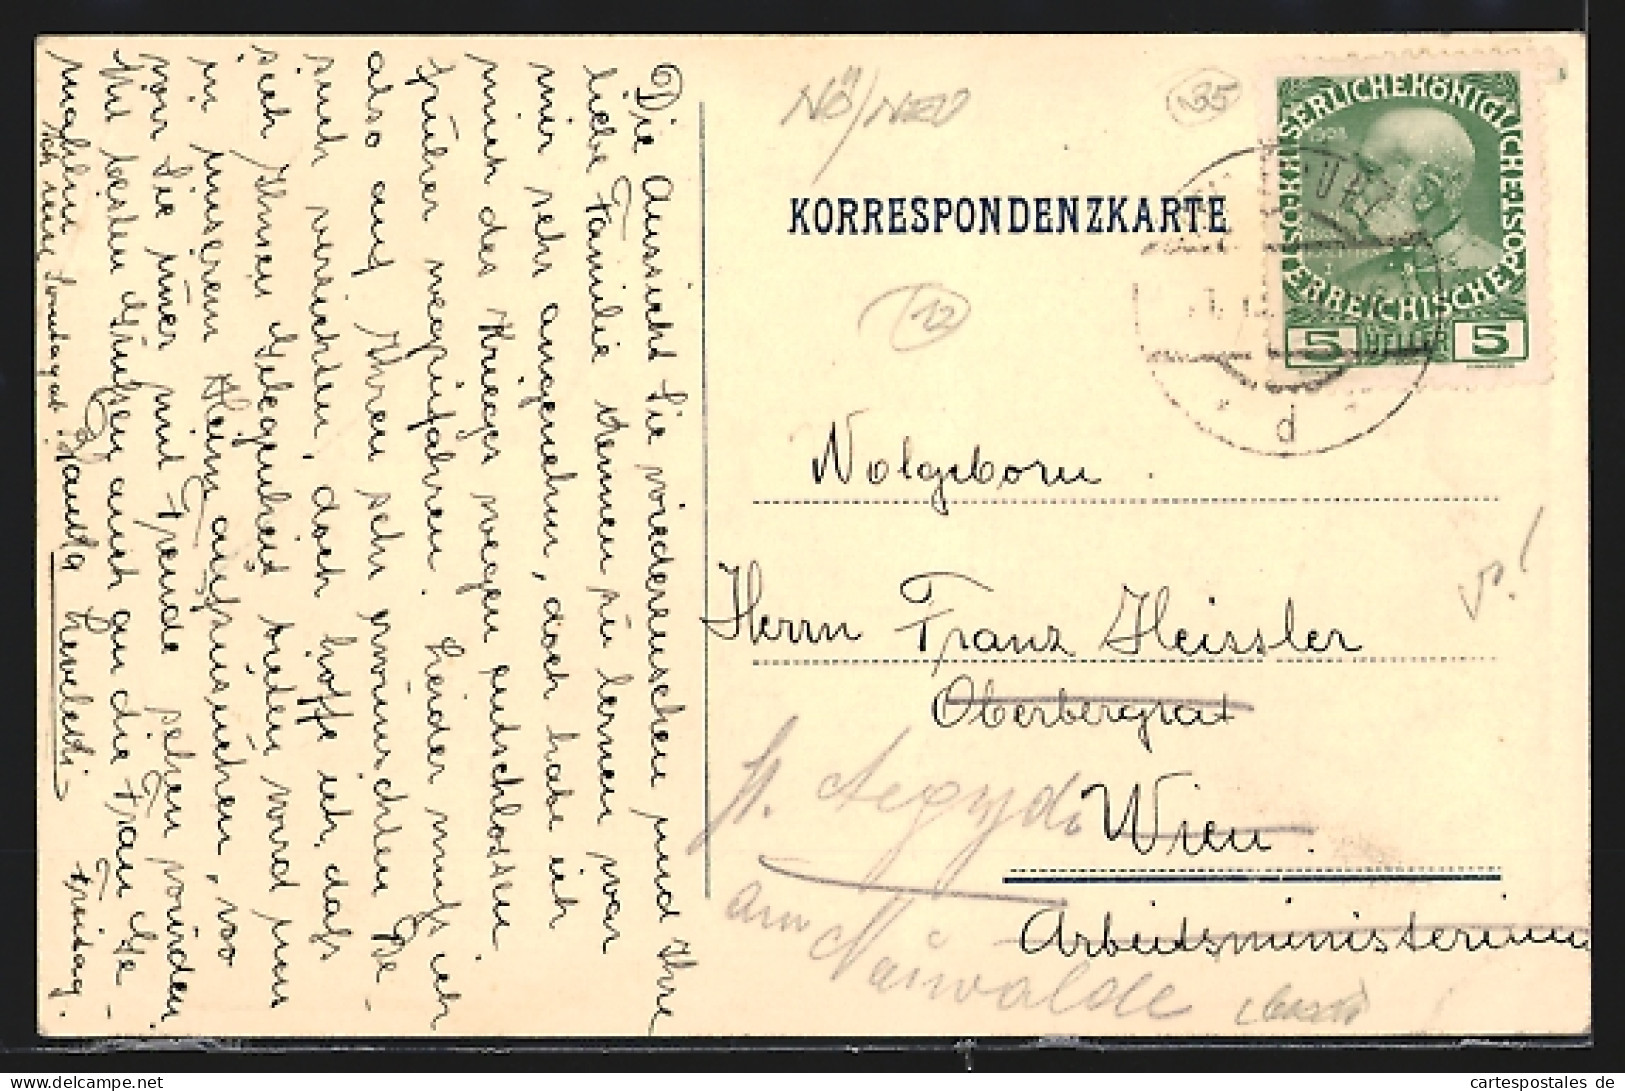 Die Aussicht Sie wiederzusehen und Ihre
liebe Familie kennen zu lernen war
mir sehr angenehm, doch habe ich
mich des Krieges wegen entschlossen
früher wegzufahren. Leider muss ich
also auf Ihren sehr erwünschten Be-
such verzichten, doch hoffe ich, dass
sich Ihnen Gelegenheit bieten wird uns
in unserem Heim aufzusuchen, wo
wir Sie immer mit Freude sehen würden.
Mit besten Grüßen auch an die Frau Ge-
mahlin
Freitag.
NÖ/NEU
35
KORRESPONDENZKARTE
12
KAISERLICHE KÖNIGLICHE
ÖSTERREICHISCHE POST
1908
5 HELLER 5
d
Wolgeborn
Herrn Franz Heissler
Oberbergrat
Wien.
Arbeitsministerium
St. Aegydi
am
Neuwalde
cartespostales de